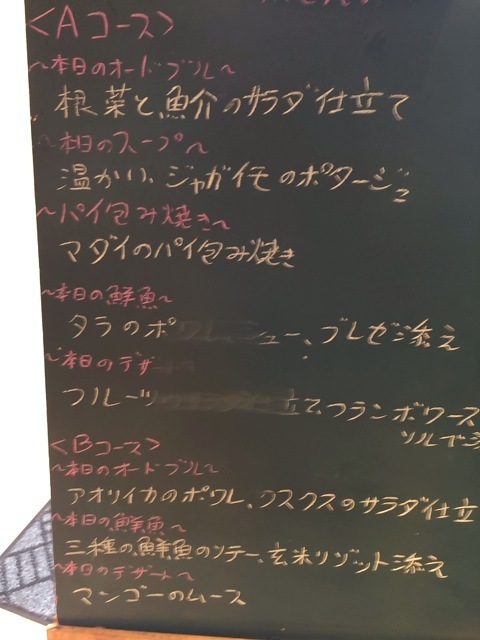 <Aコース>
~本日のオードブル~
根菜と魚介のサラダ仕立て
~本日のスープ~
温かい、ジャガイモのポタージュ
~パイ包み焼き~
マダイのパイ包み焼き
~本日の鮮魚~
タラのポワレ シュー、ブレゼ添え
~本日のデザ
フルーツ 仕立て、フランボワーズ
ソルベ添
<Bコース>
~本日のオードブル~
アオリイカのポワレ、クスクスのサラダ仕立
~本日の鮮魚~
三種の鮮魚のソテー、玄米リゾット添え
~本日のデザート~
マンゴーのムース